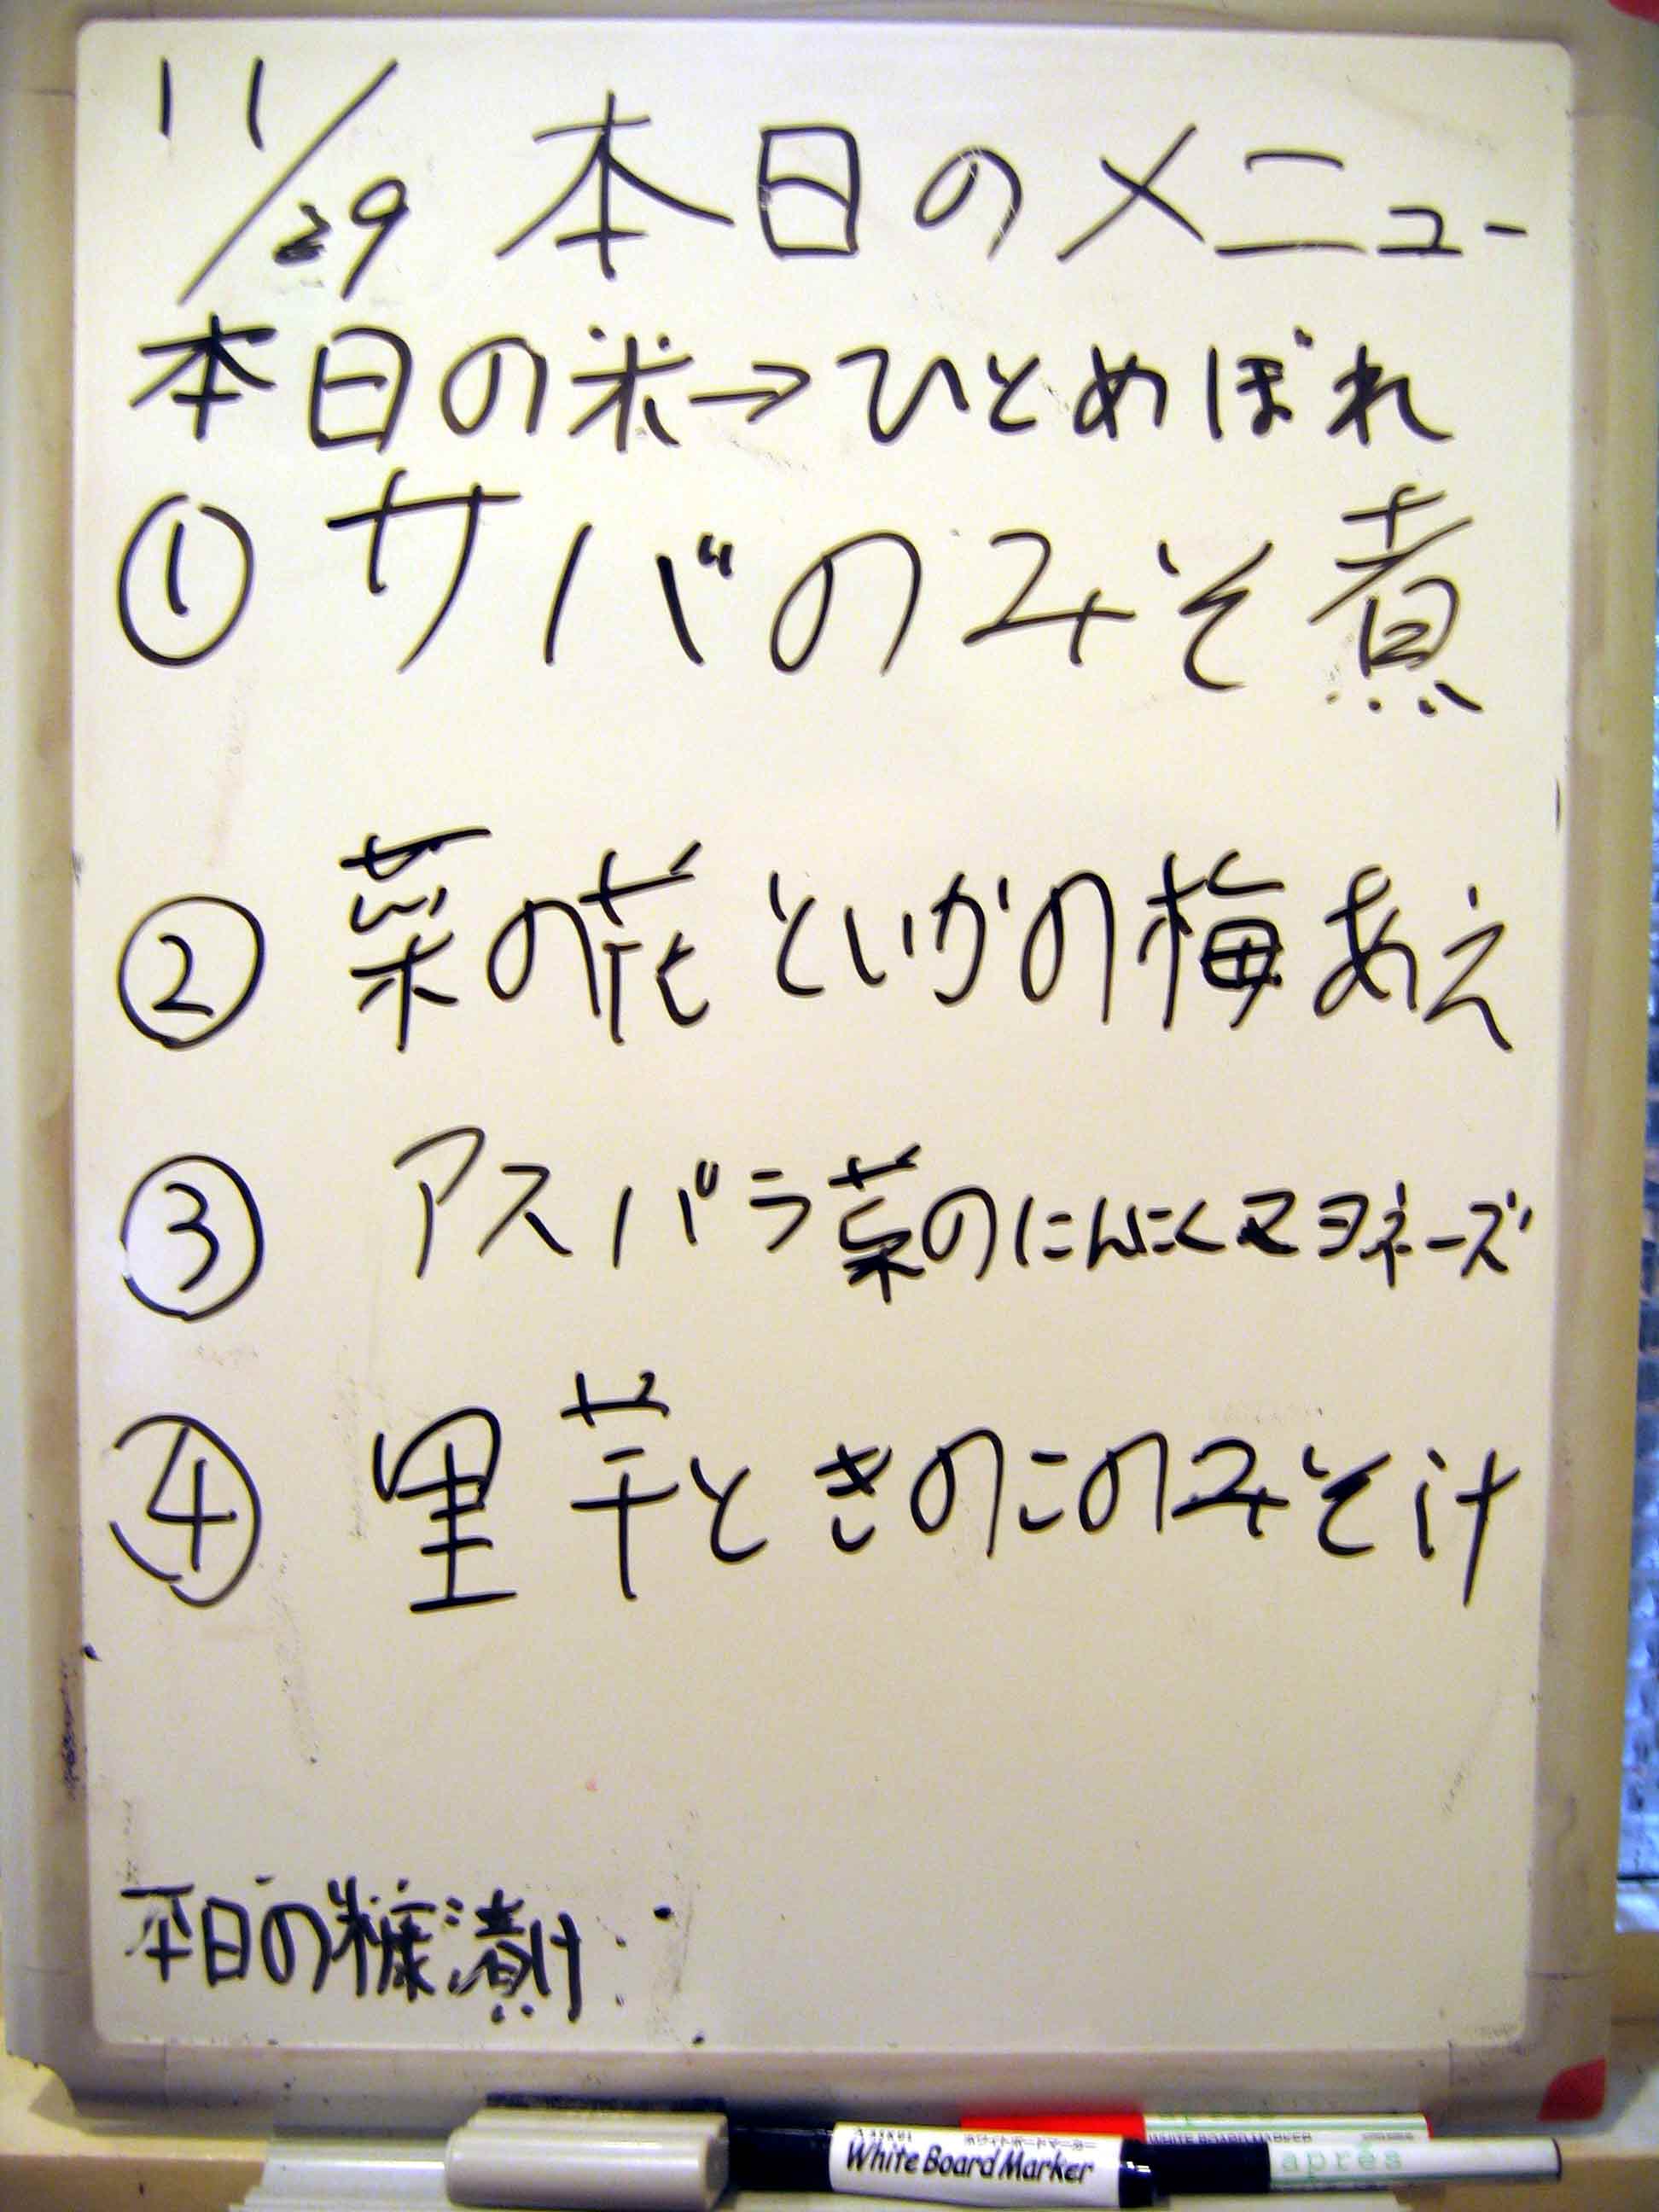 11/29 本日のメニュー
本日の米→ひとめぼれ
① サバのみそ煮
② 菜の花といかの梅あえ
③ アスパラ菜のにんにくマヨネーズ
④ 里芋ときのこのみそ汁
平日の糠漬け:
ホワイトボードマーカー
White Board Marker
WHITE BOARD MARKER
après